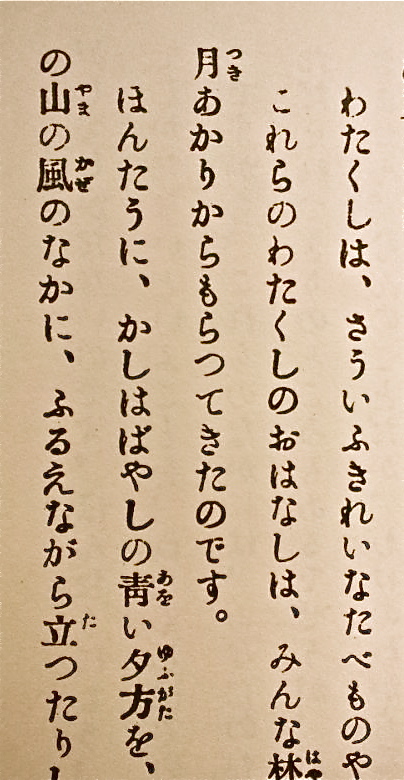 わたくしは、さういふきれいなたべものや
これらのわたくしのおはなしは、みんな林
月あかりからもらつてきたのです。
ほんたうに、かしはばやしの青い夕方を、
の山の風のなかに、ふるえながら立つたり